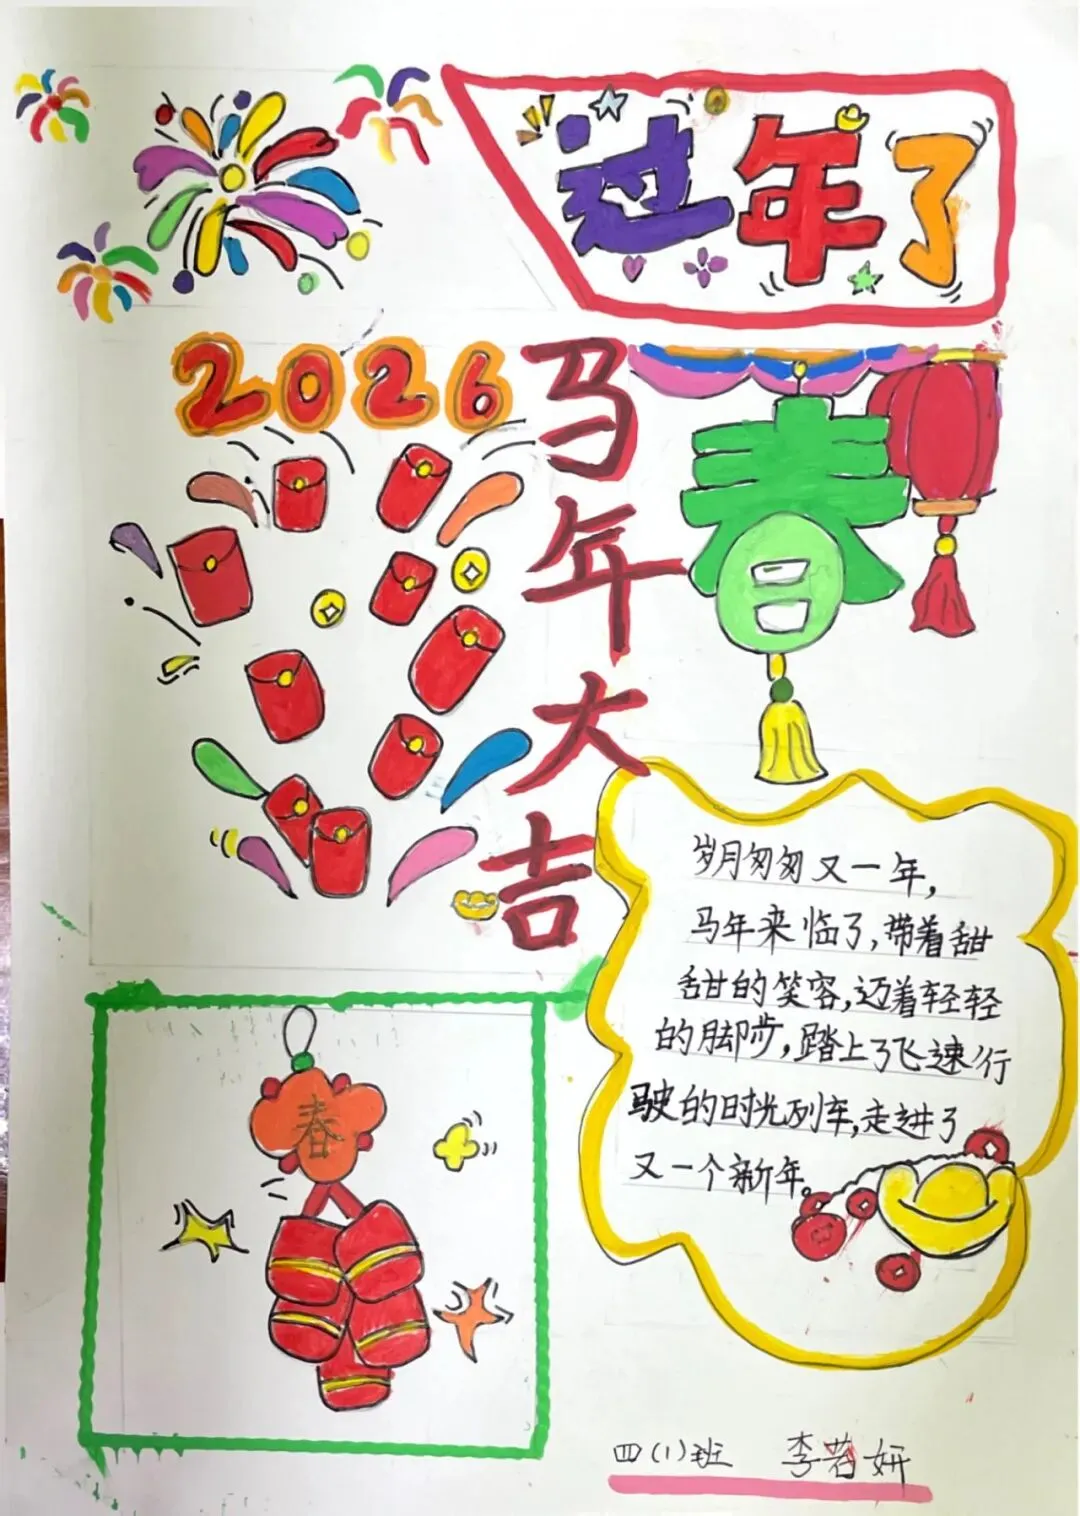 过年了
2026
马年大吉
春
岁月匆匆又一年，
马年来临了，带着甜
甜的笑容，迈着轻轻
的脚步，踏上了飞速行
驶的时光列车，走进了
又一个新年。
春
四（1）班 李若妍